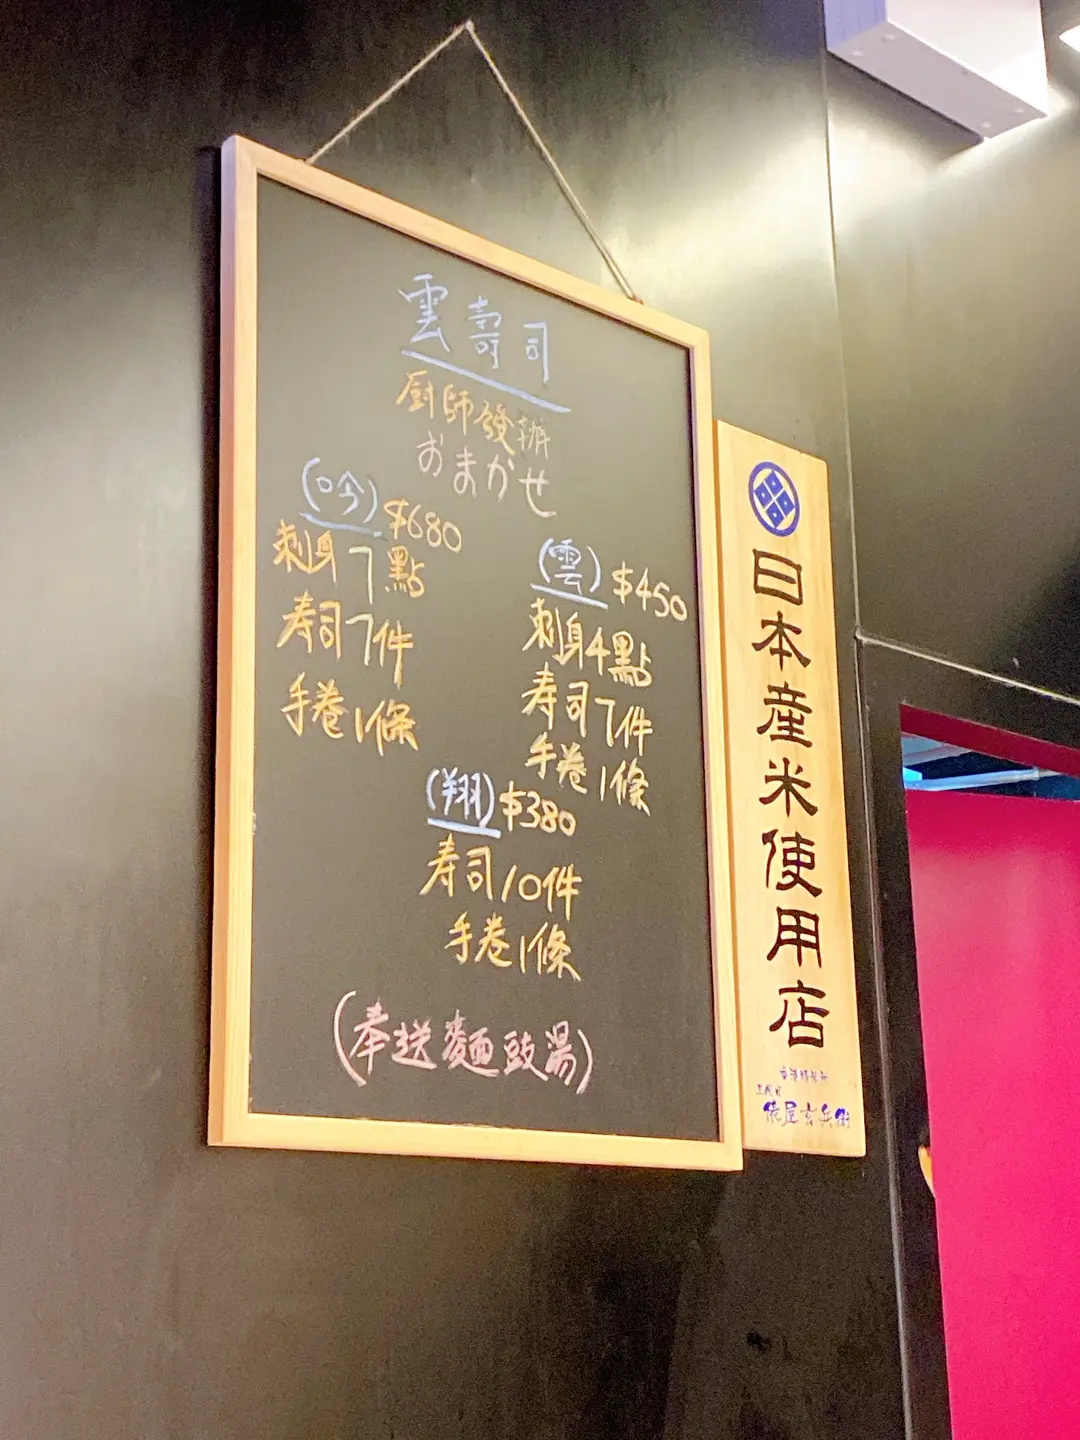 雲壽司
厨師發辦
おまかせ
(吟) $680
刺身7點
寿司7件
手巻1條
(雲) $450
刺身4點
寿司7件
手巻1條
(翔) $380
寿司10件
手巻1條
(奉送麵豉湯)
日本産米使用店
三代目
俵屋玄兵衛